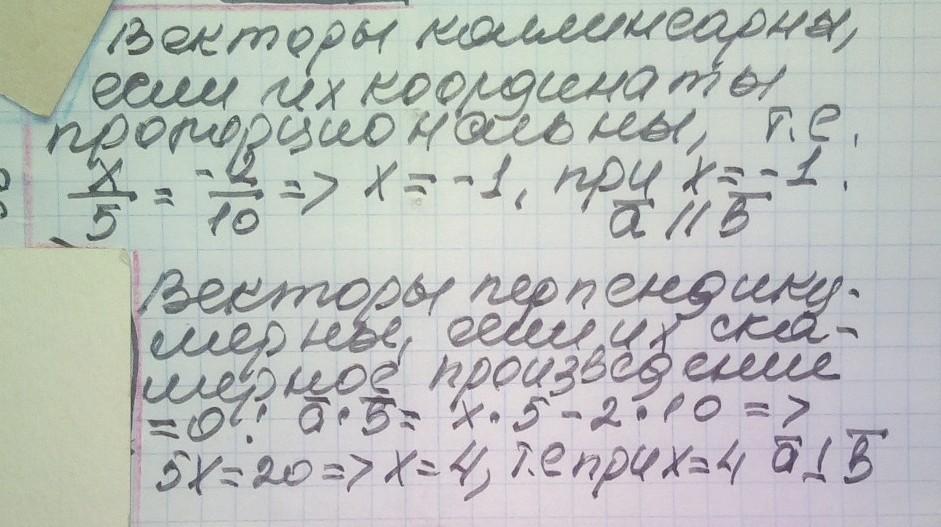 Векторы коллинеарны,
если их координаты
пропорциональны, т.е.
x/5 = -2/10 => x = -1, при x = -1.
a̅ || b̅
Векторы перпендику-
лярны, если их ска-
лярное произведение
=0: a̅·b̅ = x·5-2·10 =>
5x=20 => x=4, т.е при x=4 a̅⊥b̅